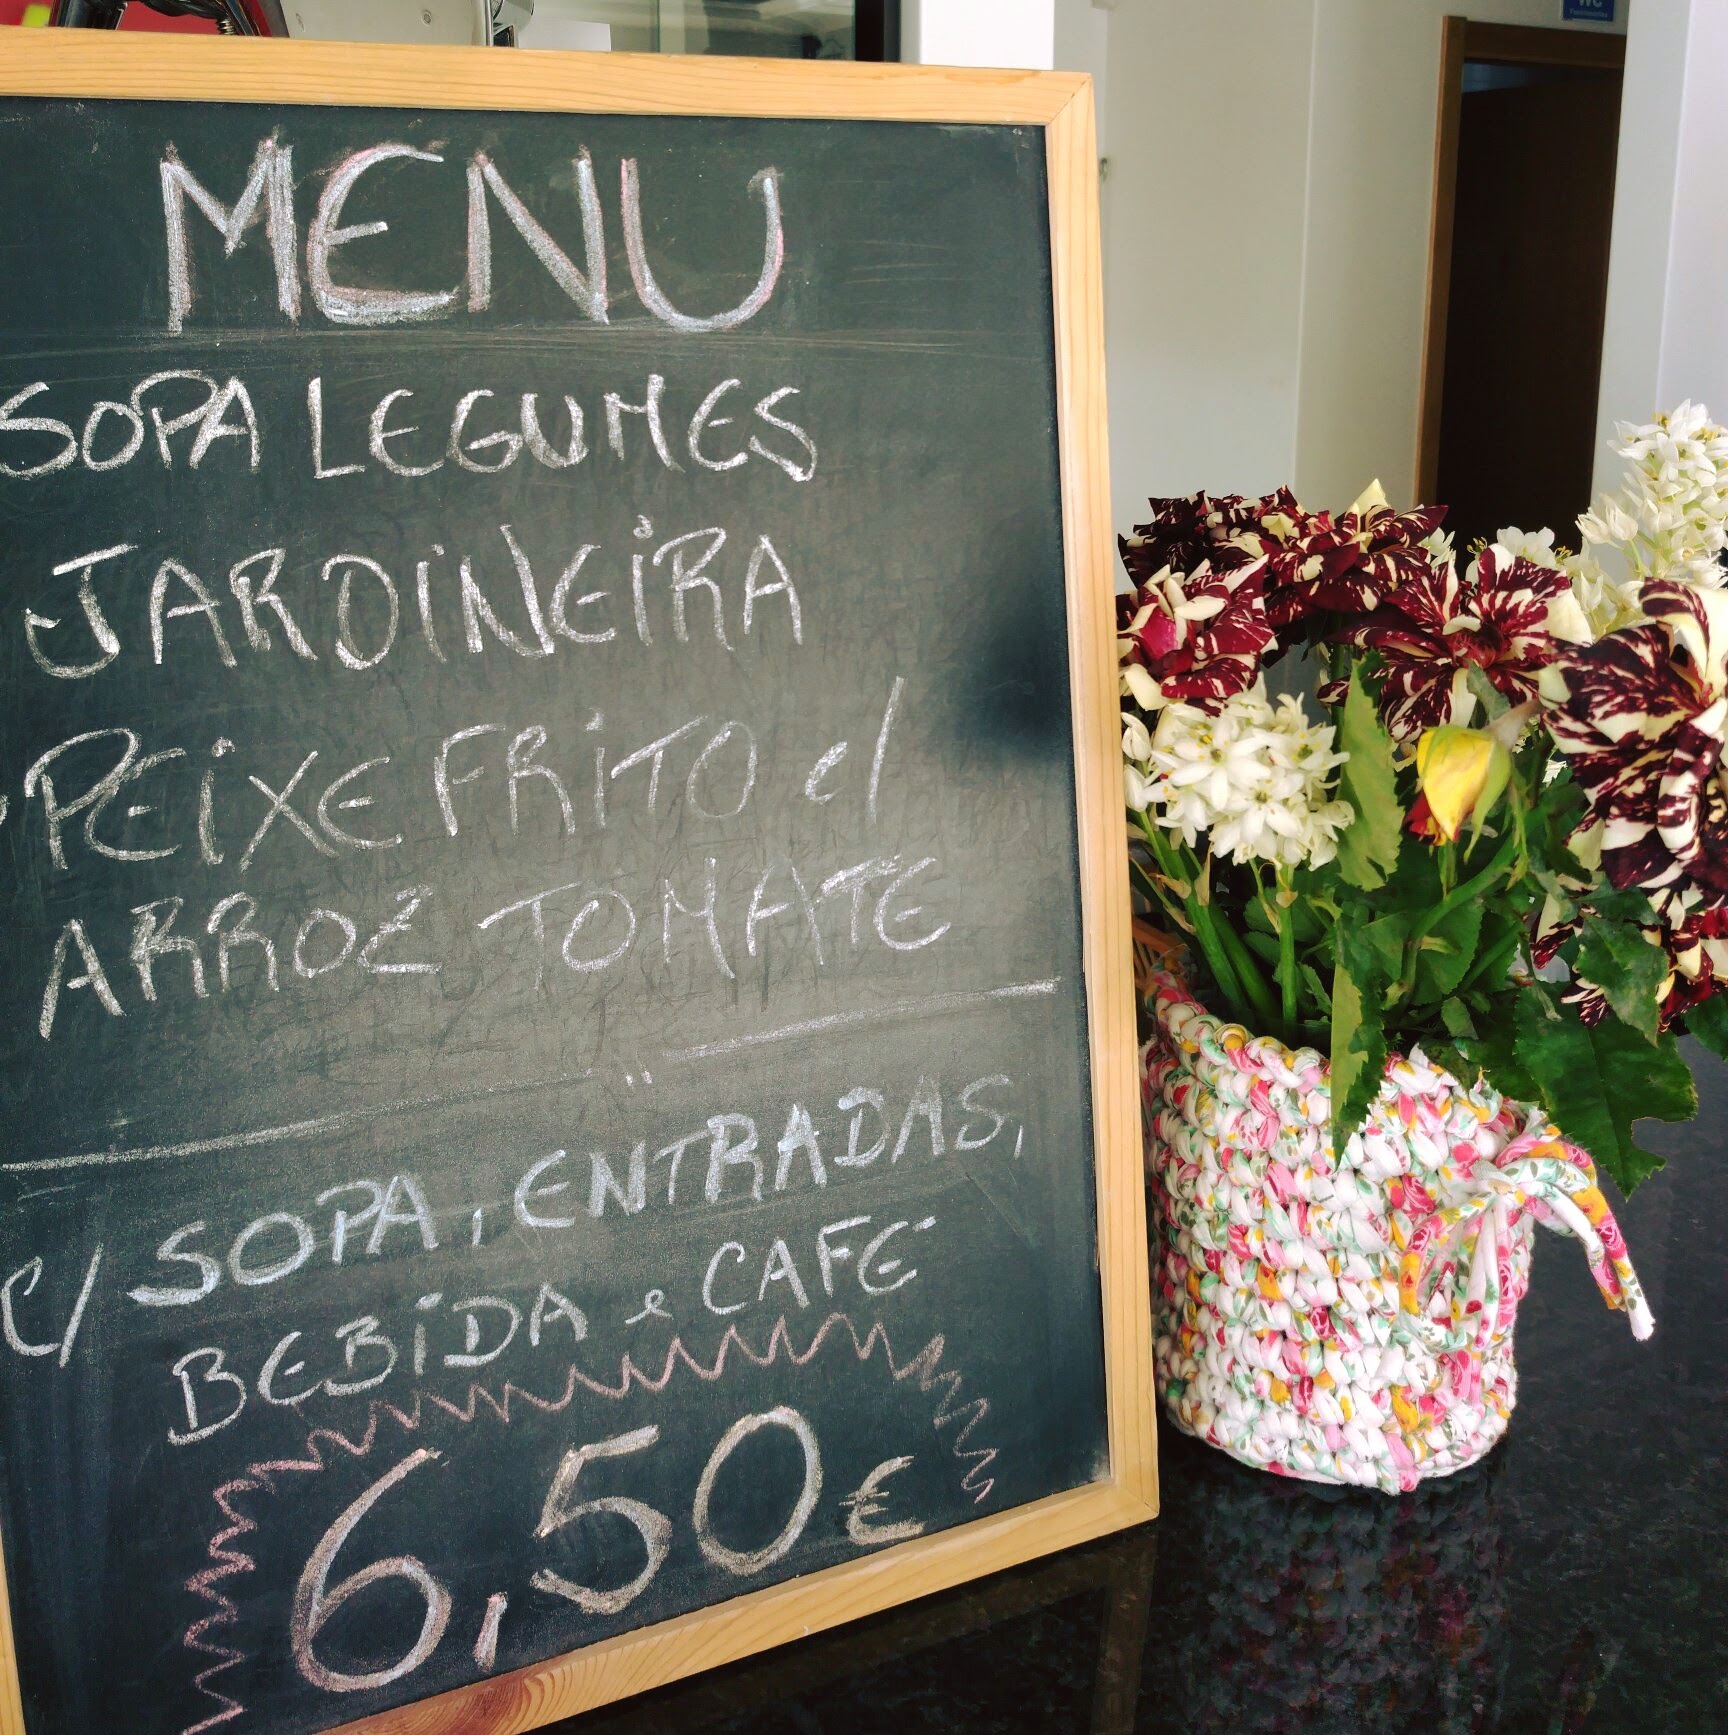 WC
MENU
SOPA LEGUMES
JARDINEIRA
PEIXE FRITO c/
ARROZ TOMATE
C/ SOPA, ENTRADAS,
BEBIDA e CAFÉ
6,50€